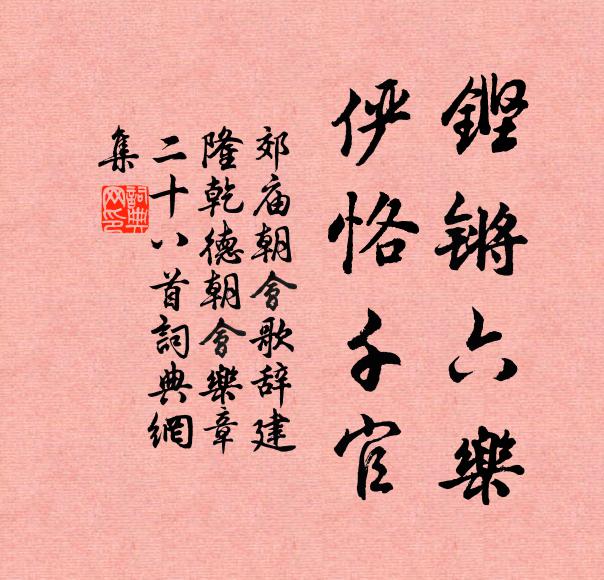 鏗锵六樂
俨恪千官
郊庙朝會歌辞建
隆乾德朝會樂章
二十八首詞典網
集
詞典
网印